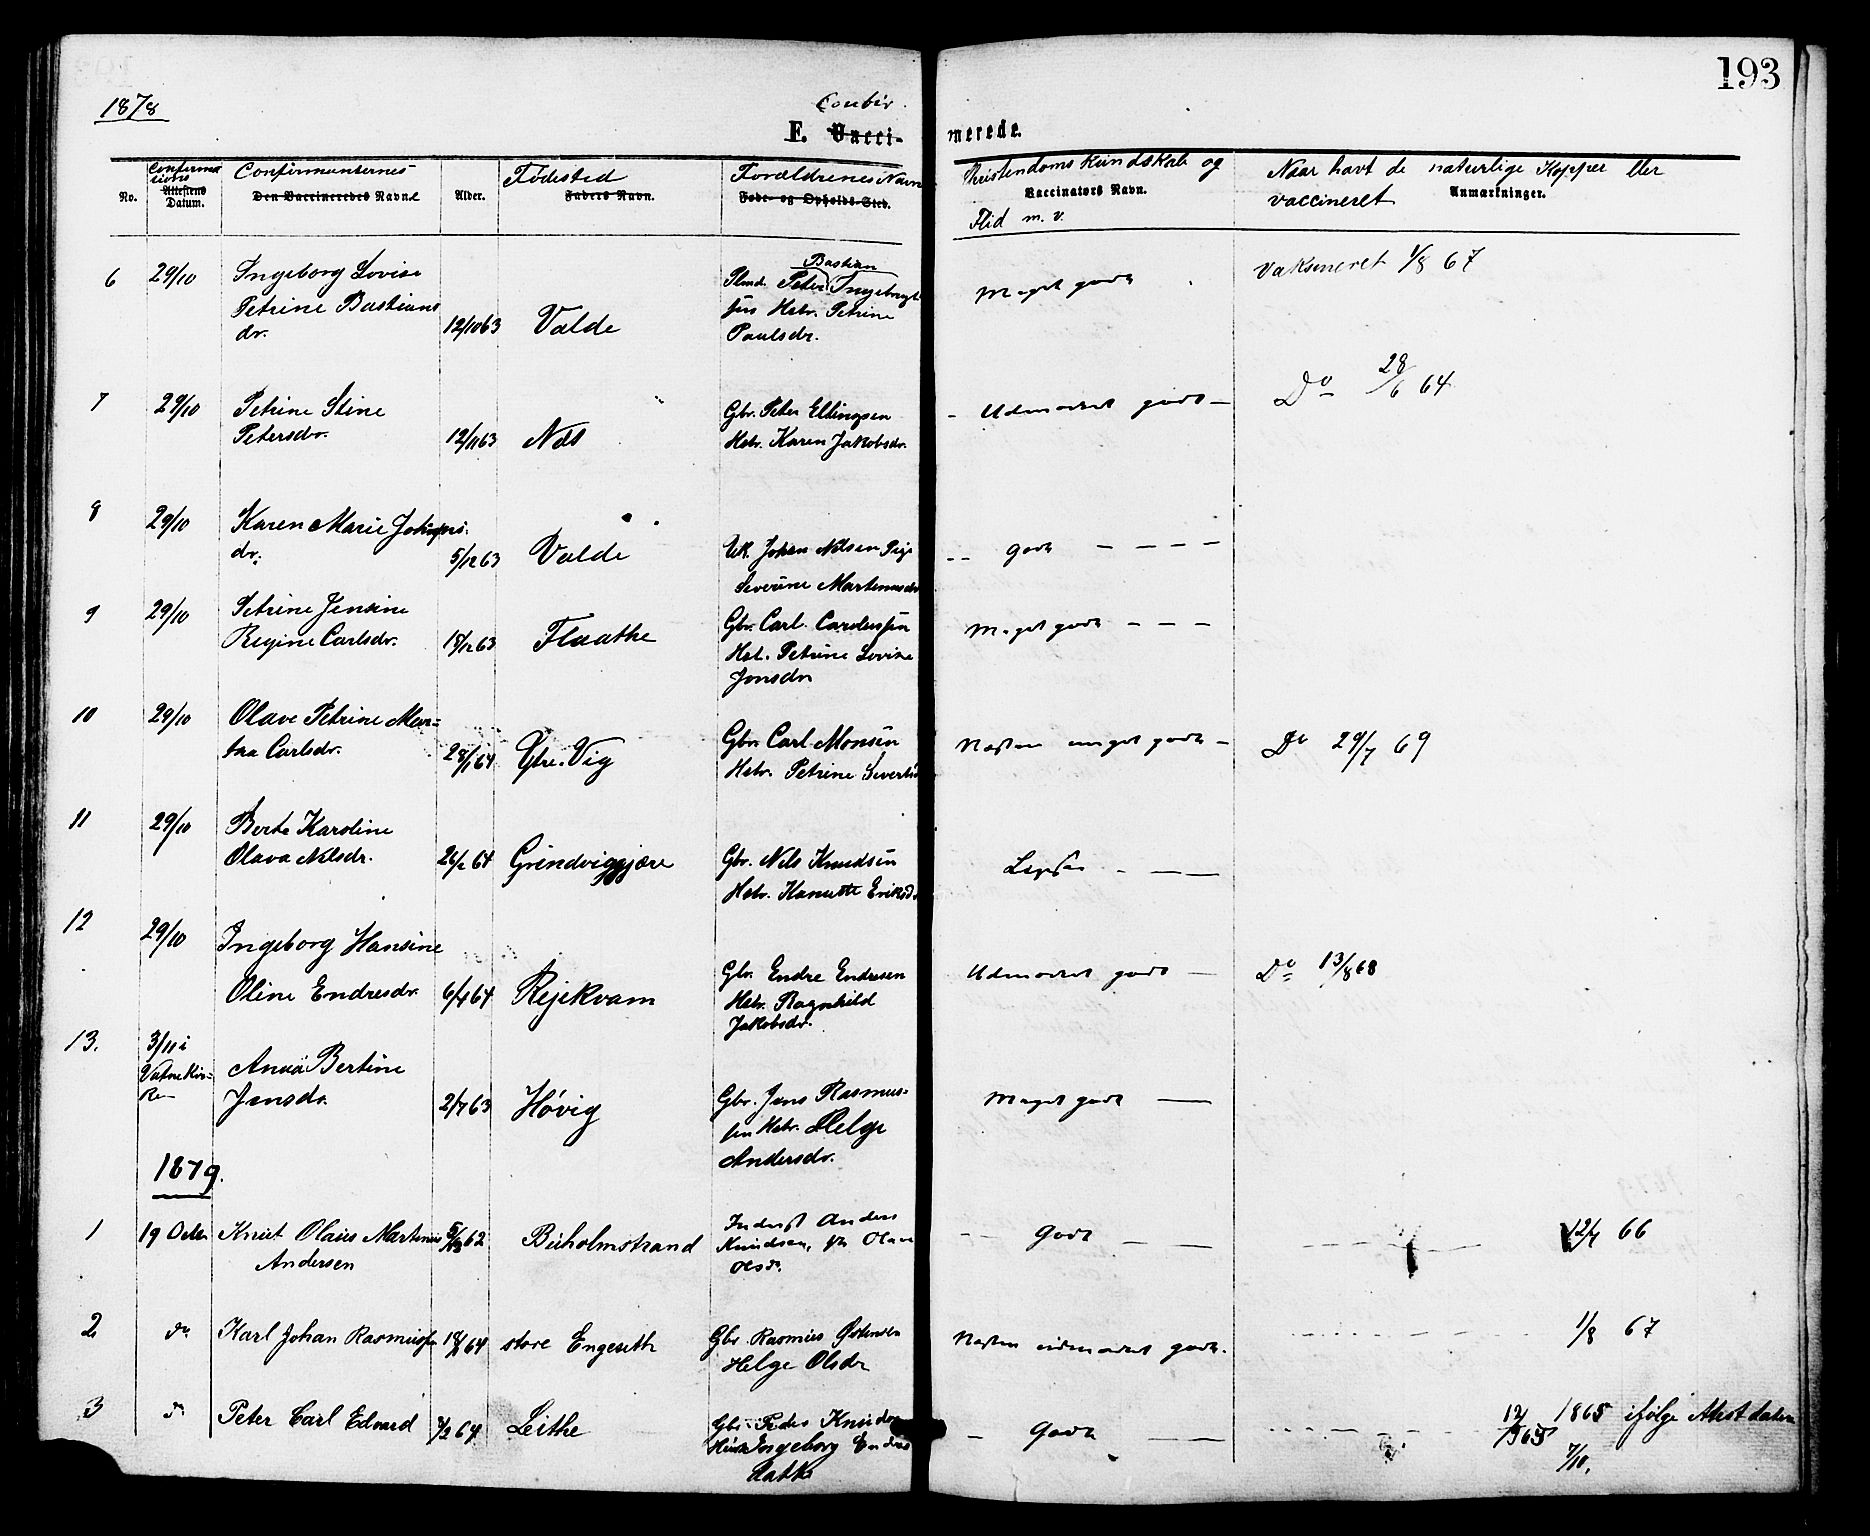 193
1878
Confir
F. Vacci- merede.
No.
Confirma
tions
Attestens
Datum.
Confirmanternes
Den Vaccineredes Navn.
Alder.
Fødested
Faders Navn.
Forældrenes Navn
Føde- og Opholds-Sted.
Christendoms Kundskab og
Vaccinators Navn.
Flid m. v.
Naar havt de naturlige Kopper eller
vaccineret Anmærkninger.
6 29/10 Ingeborg Lovise
Petrine Bastians
dr. 12/10 63 Valde
Bastian
Peter Ingebrigt
sen Hstr. Petrine
Paulsdr.
Meget godt
Vaksineret 1/8 67
7 29/10 Petrine Stine
Petersdr. 12/11 63 Nes
Gbr. Peter Ellingsen
Hstr. Karen Jakobsdr.
- Udmærket godt -
Do 28/6 64
8 29/10 Karen Marie Johans
dr. 5/12 63 Valde
Uk. Johan Nilsen Pige
Severine Martinusdr
- - Godt - - - -
9 29/10 Petrine Jensine
Regine Carlsdr. 18/12 63 Flaathe
Gbr. Carl
Hst. Petrine Lovise
Jonsdr
Meget godt - - -
10 29/10 Olave Petrine Mar=
taa Carlsdr. 28/1 64 Ytre. Vig
Gbr. Carl Monsen
Hstr. Petrine Sivertsd
Næsten meget godt -
Do 29/7 69
11 29/10 Berte Karoline
Olava Nilsdr. 26/2 64 Grindviggjære
Gbr. Nils Knudsen
Hstr. Hanette Eriksd.
12 29/10 Ingeborg Hansine
Oline Endresdr. 6/4 64 Rejekvam
Gbr. Endre Endresen
Hstr. Ragnhild
Jakobsdr.
Udmærket godt -
Do 13/8 68
13. 3/11 i
Vatne Kir=
ke
Anna Bertine
Jensdr. 2/7 63 Høvig
Gbr. Jens Rasmus-
sen Hstr. Helge
Andersdr.
Meget godt -
1879.
1 19 Octbr Knut Olaus Martinus
Andersen 62 Buholmstrand
Inderst Anders
Knudsen, Olave
Olsdr.
- - Godt - - 12/7 66
2 do Karl Johan Rasmussen 64 store Engeseth
Gbr. Rasmus Østensen
Helge Olsdr
Næsten udmærket godt. 1/8 67
3 do Peter Carl Edvard 64 Leithe
Gbr. Peder Knudsen
Hustru Ingeborg Endres
datter
- Godt -
12/ 1865 ifølge Attest datm
7/10.